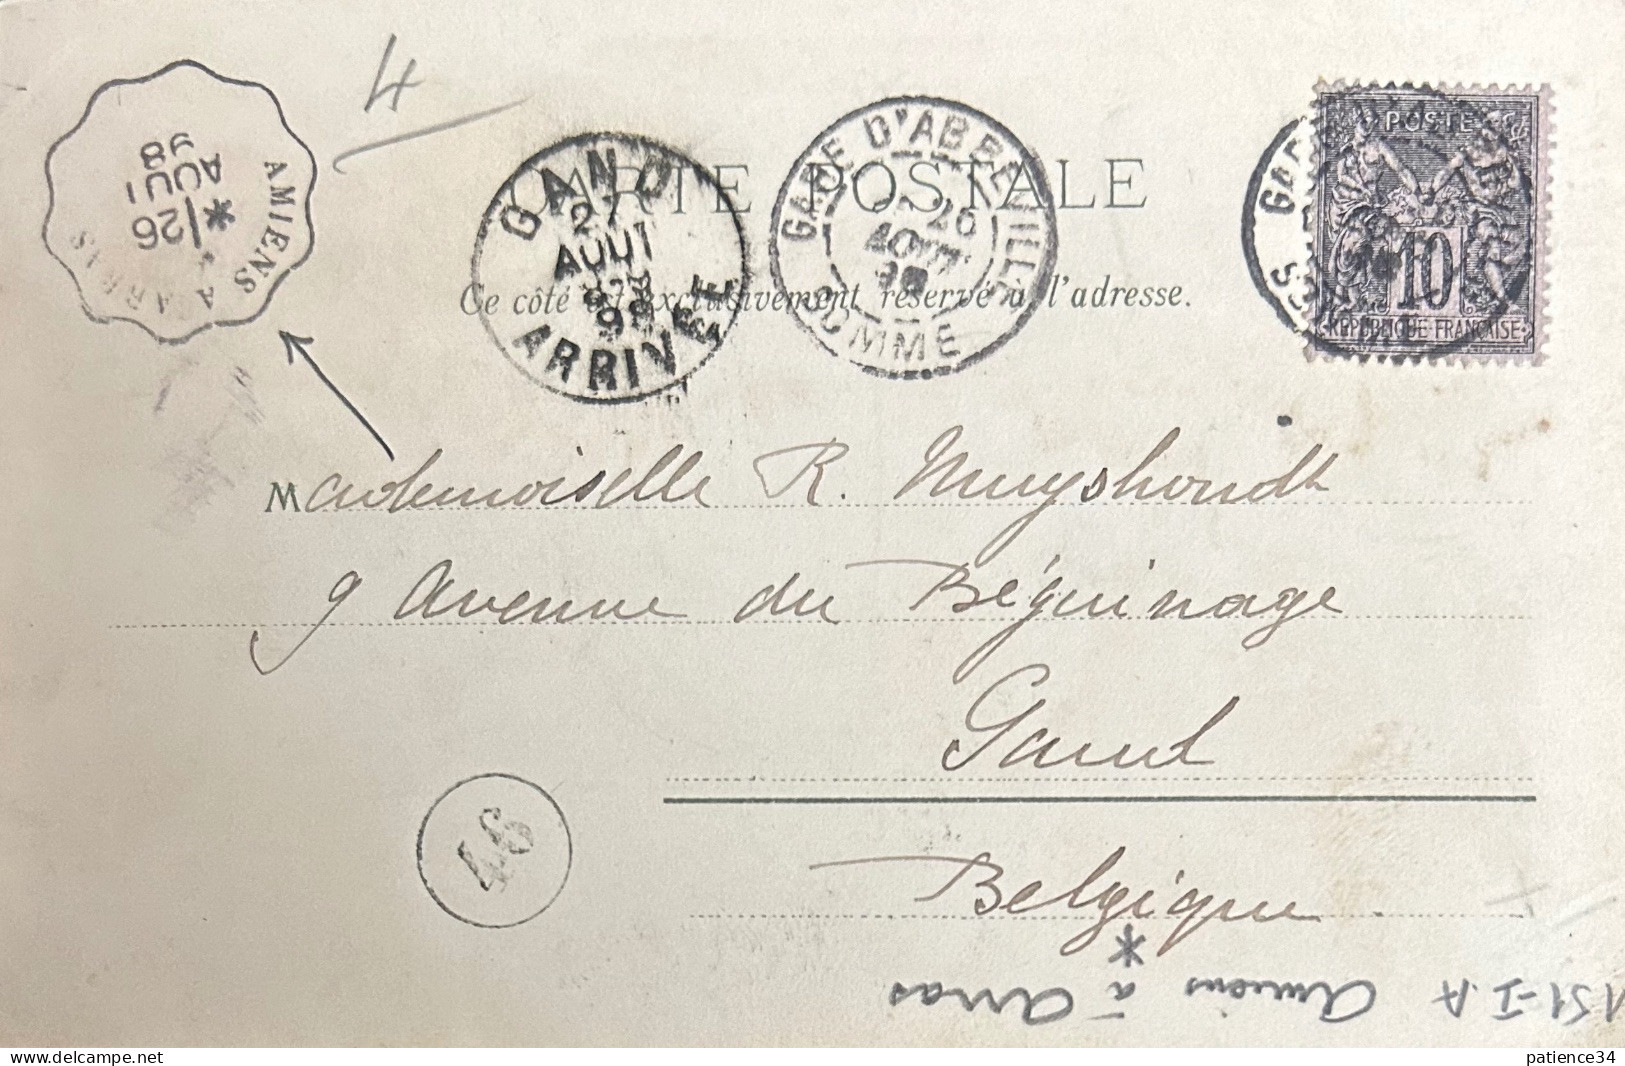 4
AMIENS A ARRAS
*/26
AOUT
98
GAND
27
AOUT
98
ARRIVÉE
GARE D'ABBEVILLE
26
AOUT
98
SOMME
POSTE
10
REPUBLIQUE FRANÇAISE
CARTE POSTALE
Ce côté est exclusivement réservé à l'adresse.
Mademoiselle R. Muyshondt
9 Avenue du Béguinage
Gand
46
Belgique
*
Amiens à Arras
patience34